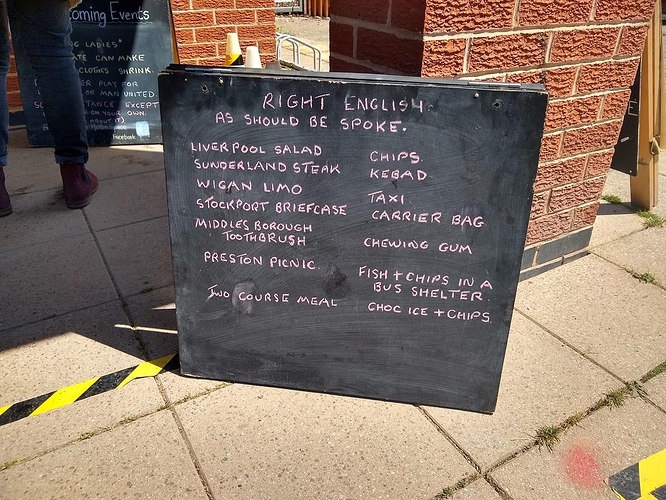 coming Events
LADIES"
ATE CAN MAKE
CLOTHES SHRINK.
ER PLAY FOR
OR MAN UNITED.
TANCE EXCEPT
ON YOUR OWN.
ABOUT IT)
Facebook
RIGHT ENGLISH.
AS SHOULD BE SPOKE.
LIVERPOOL SALAD CHIPS.
SUNDERLAND STEAK KEBAD
WIGAN LIMO TAXI
STOCKPORT BRIEFCASE CARRIER BAG
MIDDLES BOROUGH
TOOTHBRUSH CHEWING GUM
PRESTON PICNIC. FISH + CHIPS IN A
BUS SHELTER.
TWO COURSE MEAL CHOC ICE + CHIPS.